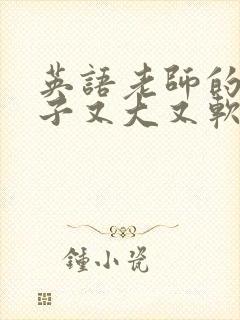 英語老師的
子又大又軟
鍾小瓷